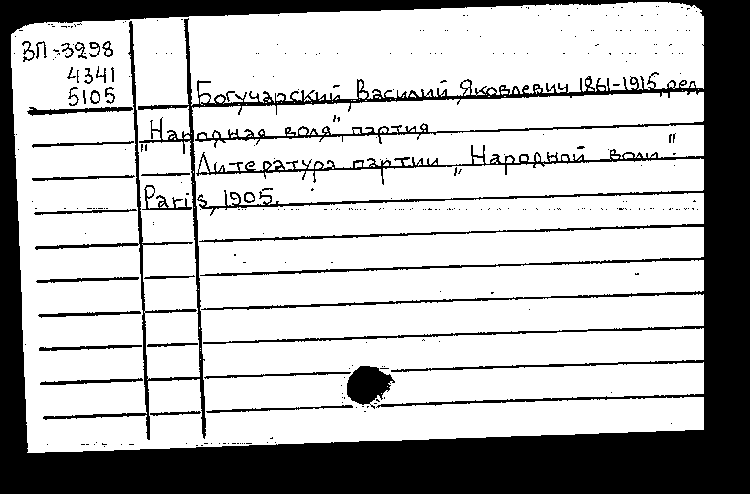 ВП-3298
4341
5105
Богучарский, Василий Яковлевич, 1861-1915, ред.
„Народная воля", партия.
Литература партии „Народной воли".
Paris, 1905.